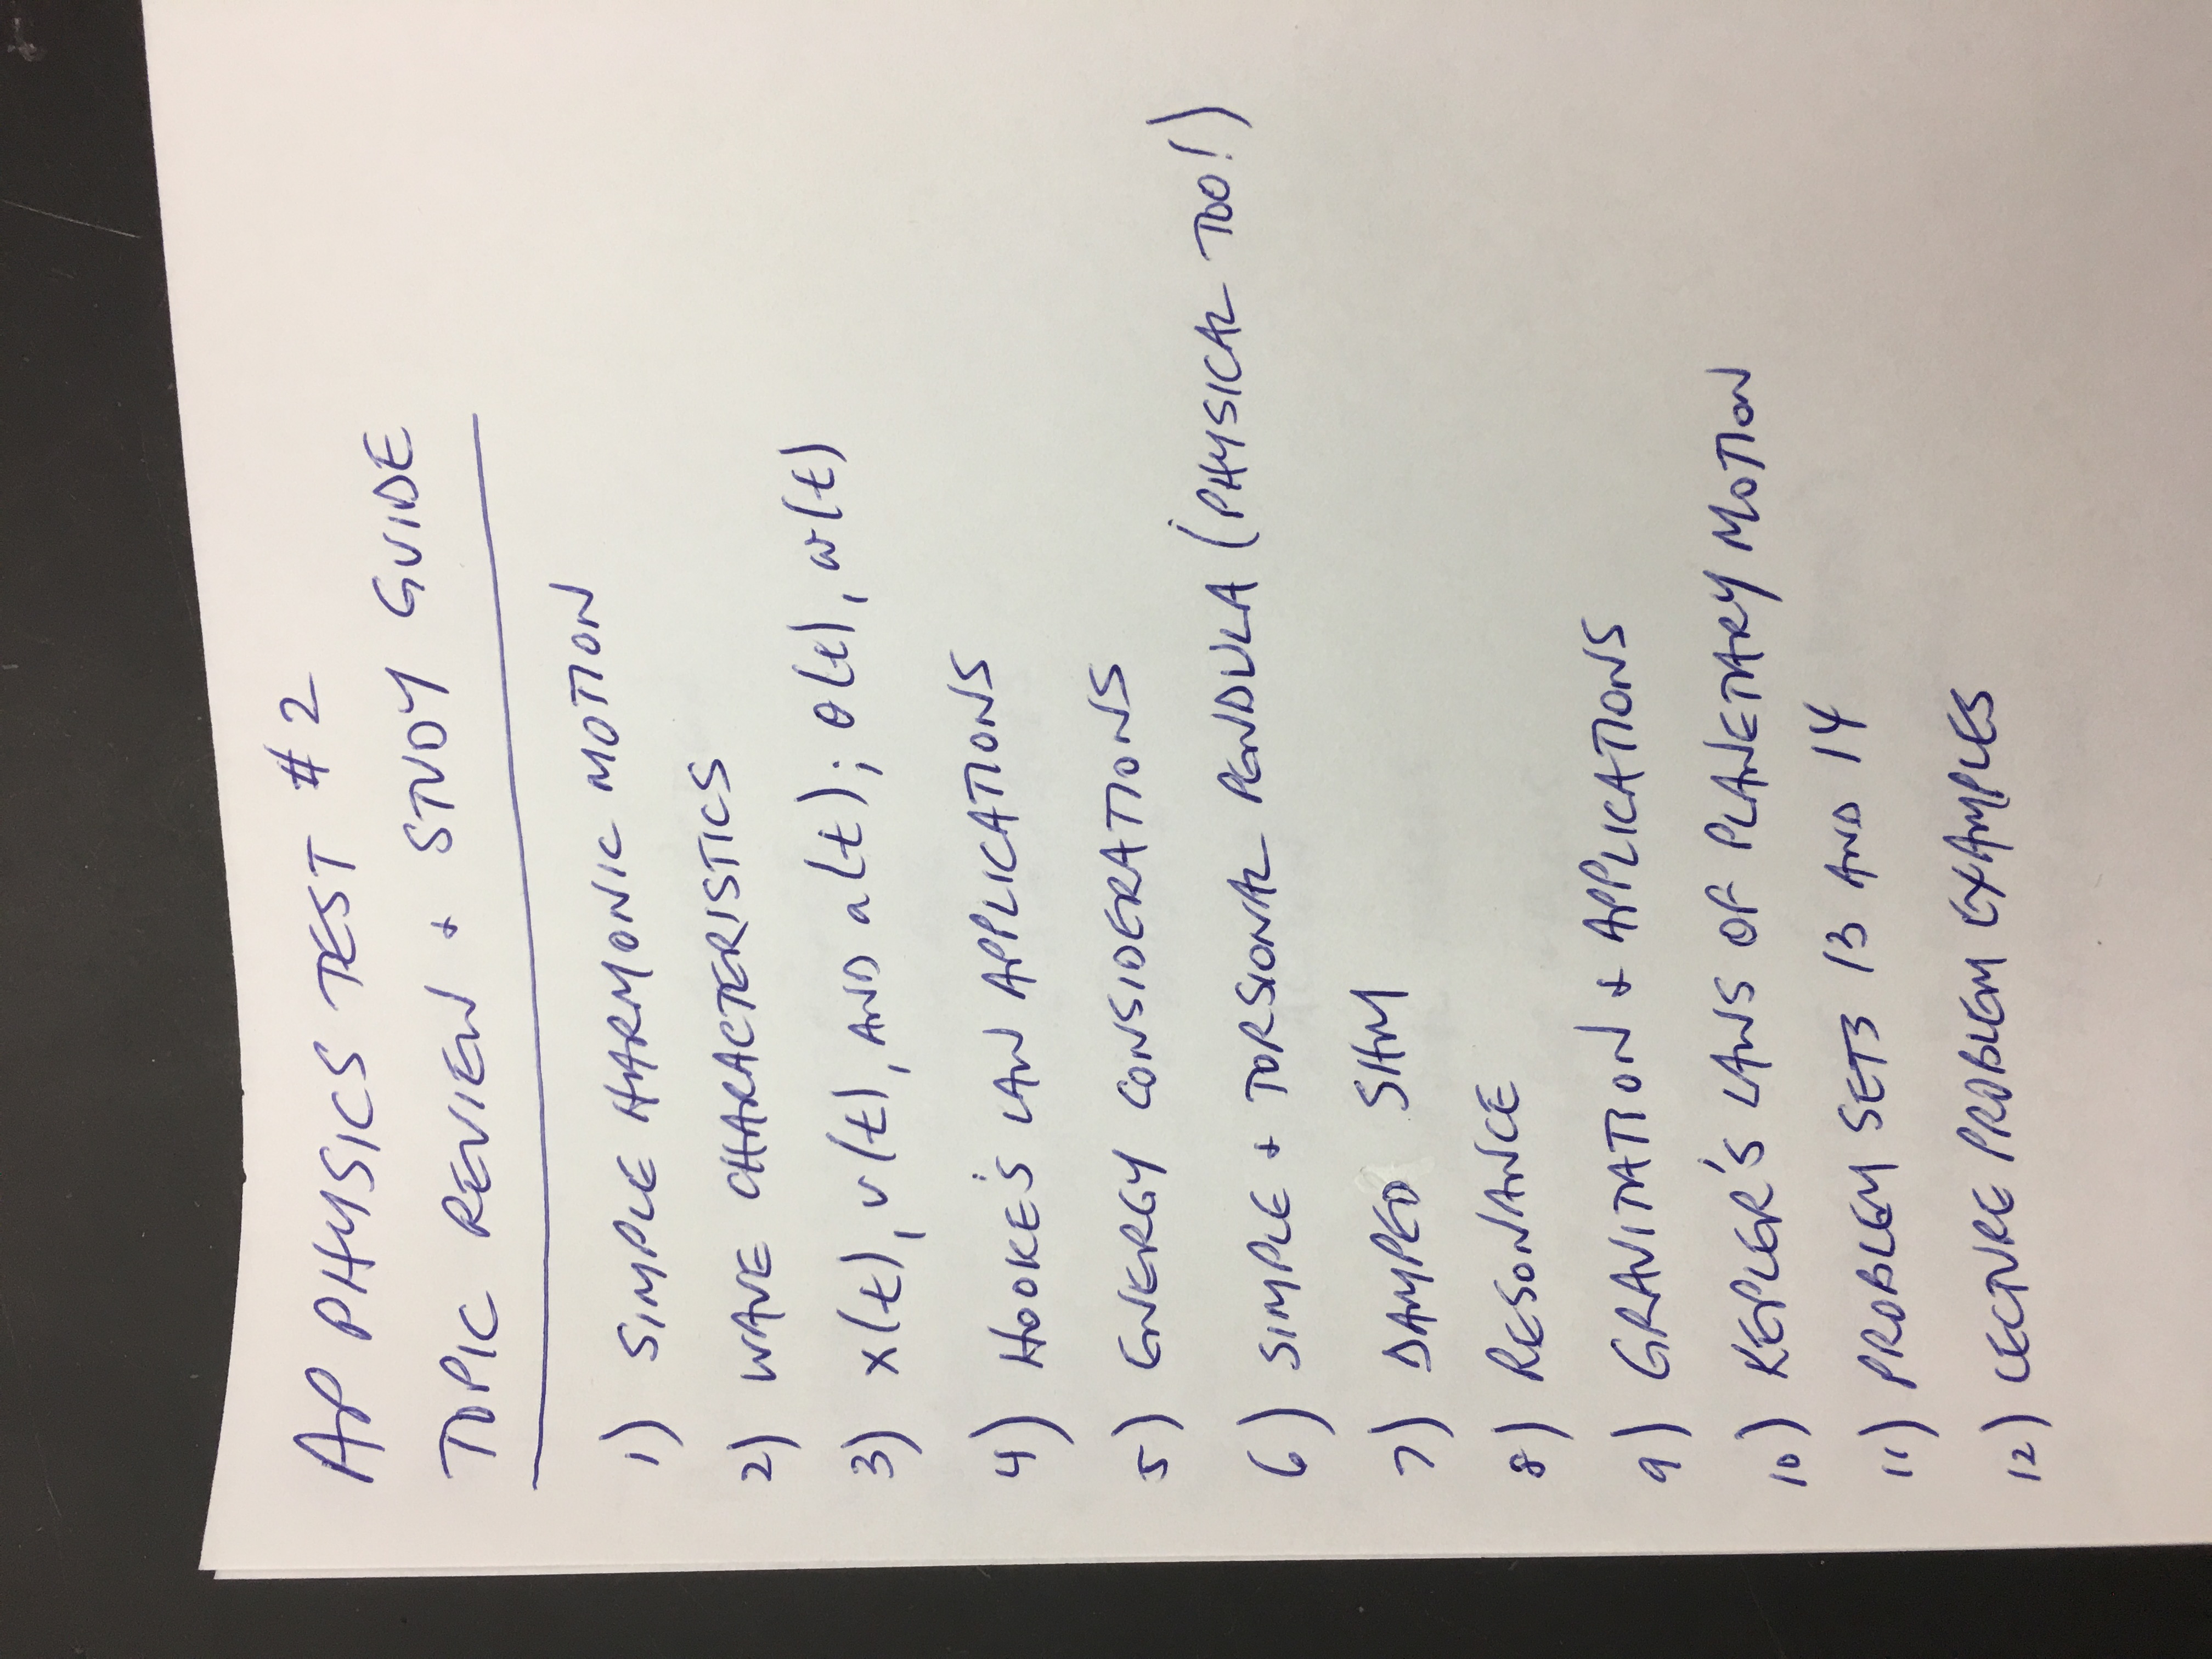 AP PHYSICS TEST #2
TOPIC REVIEW + STUDY GUIDE
1) SIMPLE HARMONIC MOTION
2) WAVE CHARACTERISTICS
3) x(t), v(t), AND a(t); θ(t), ω(t)
4) HOOKE'S LAW APPLICATIONS
5) ENERGY CONSIDERATIONS
6) SIMPLE + TORSIONAL PENDULA (PHYSICAL TOO!)
7) DAMPED SHM
8) RESONANCE
9) GRAVITATION + APPLICATIONS
10) KEPLER'S LAWS OF PLANETARY MOTION
11) PROBLEM SETS 13 AND 14
12) LECTURE PROBLEM EXAMPLES